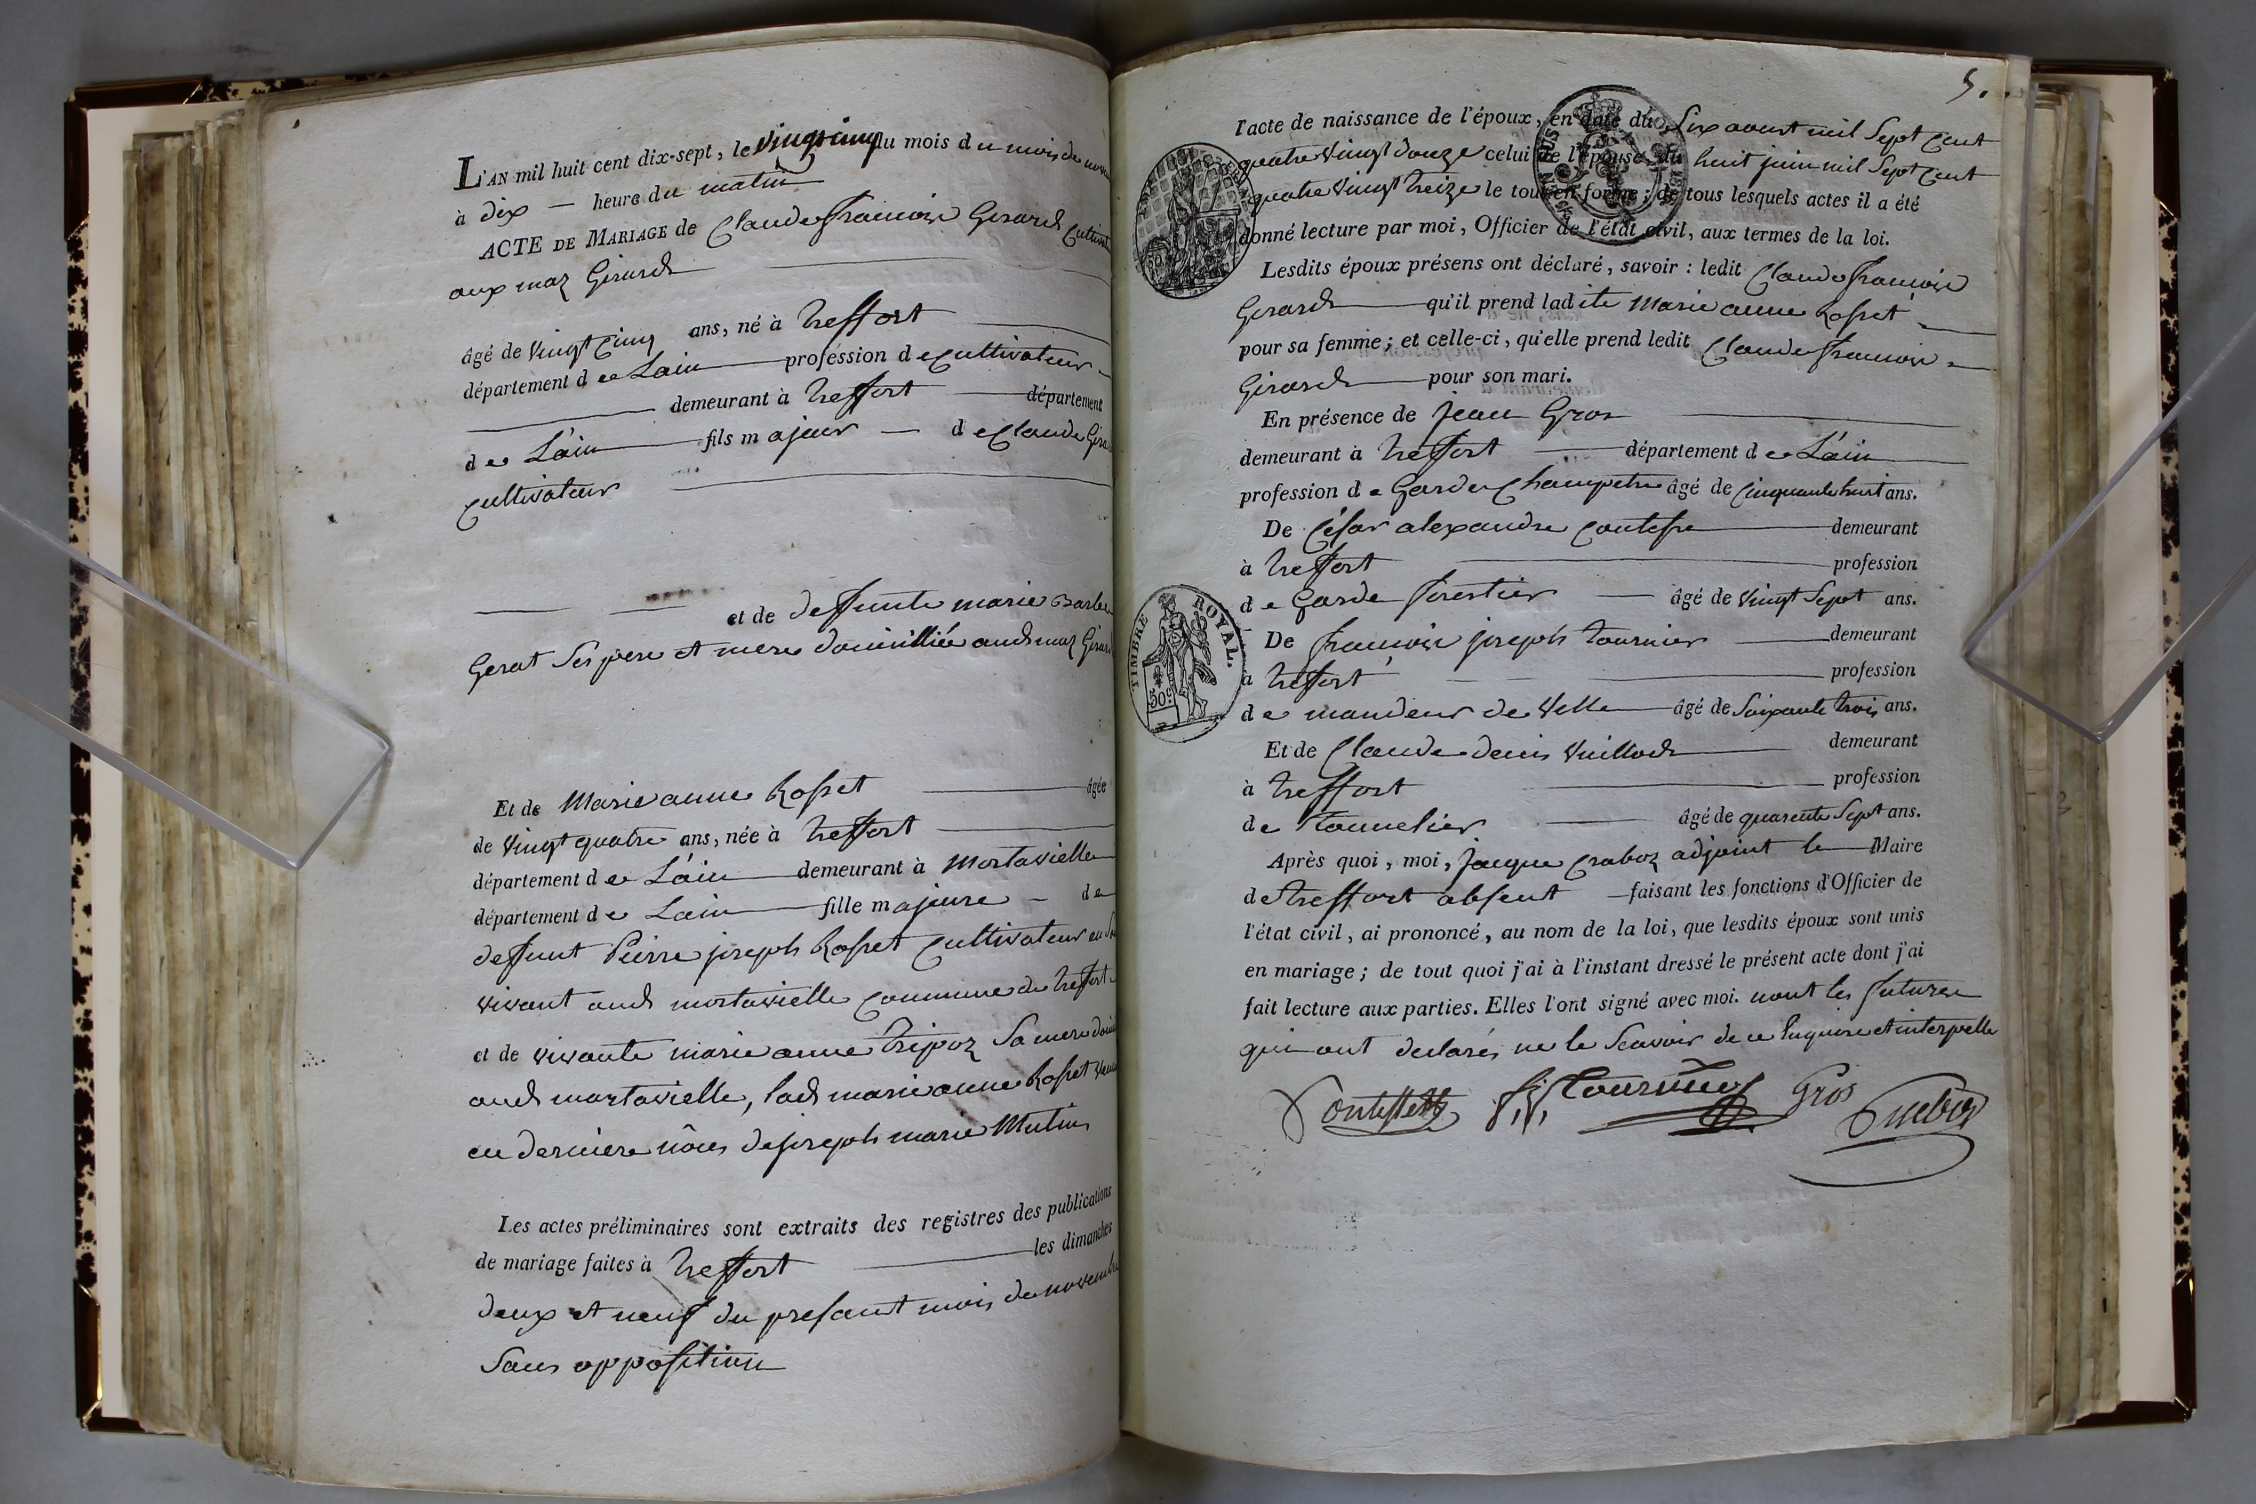 L'AN mil huit cent dix-sept, le vingt cinq du mois d u mois de
à dix — heure du matin
ACTE DE MARIAGE de Claude françoise Gerard
aux maz Girard
âgé de vingt cinq ans, né à treffort
département d e Lain profession d e cultivateur
demeurant à treffort département
d e L'ain fils m ajeur — d e Claude
cultivateur
et de deffunte marie
Gerat ses pere et mere domicilliée audi maz
Et de Marie anne Rosset âgée
de vingt quatre ans, née à treffort
département d e L'ain demeurant à Mortavielle
département d e Lain fille m ajeure — de
deffunt Pierre joseph Rosset cultivateur en
vivant aud mortavielle commune de treffort
et de vivante marie anne tripoz Sa mere
aud mortavielle, lad marie anne Rosset
en derniere nôces de joseph marie Mutin
Les actes préliminaires sont extraits des registres des publications
de mariage faites à treffort les dimanches
deux et neuf du presant mois de novembre
Sans opposition
5.
l'acte de naissance de l'époux, en date du Six aoust mil Sept Cent
quatre vingt douze celui de l'épouse du huit juin mil Sept Cent
quatre vingt treize le tout en forme ; de tous lesquels actes il a été
donné lecture par moi, Officier de l'état civil, aux termes de la loi.
Lesdits époux présens ont déclaré, savoir : ledit Claude françoise
Gerard qu'il prend lad ite Marie anne Rosset
pour sa femme ; et celle-ci, qu'elle prend ledit Claude françoise
Girard pour son mari.
En présence de jean Gros
demeurant à treffort département d e L'ain
profession d e Garde Champetre âgé de Cinquante huit ans.
De César alexandre contesse demeurant
à treffort profession
d e Garde forestier âgé de vingt Sept ans.
De françoise joseph tournier demeurant
à treffort profession
d e mandeur de Ville âgé de Soixante trois ans.
Et de Claude denis Vuillod demeurant
à treffort profession
d e tonnelier âgé de quarente Sept ans.
Après quoi, moi, jacque Craboz adjoint le Maire
de treffort absent faisant les fonctions d'Officier de
l'état civil, ai prononcé, au nom de la loi, que lesdits époux sont unis
en mariage ; de tout quoi j'ai à l'instant dressé le présent acte dont j'ai
fait lecture aux parties. Elles l'ont signé avec moi. nont les futures
qui ont declarés ne le Scavoir de ce Enquise et interpelle
f. j. tournier Gros
TIMBRE ROYAL.
50c